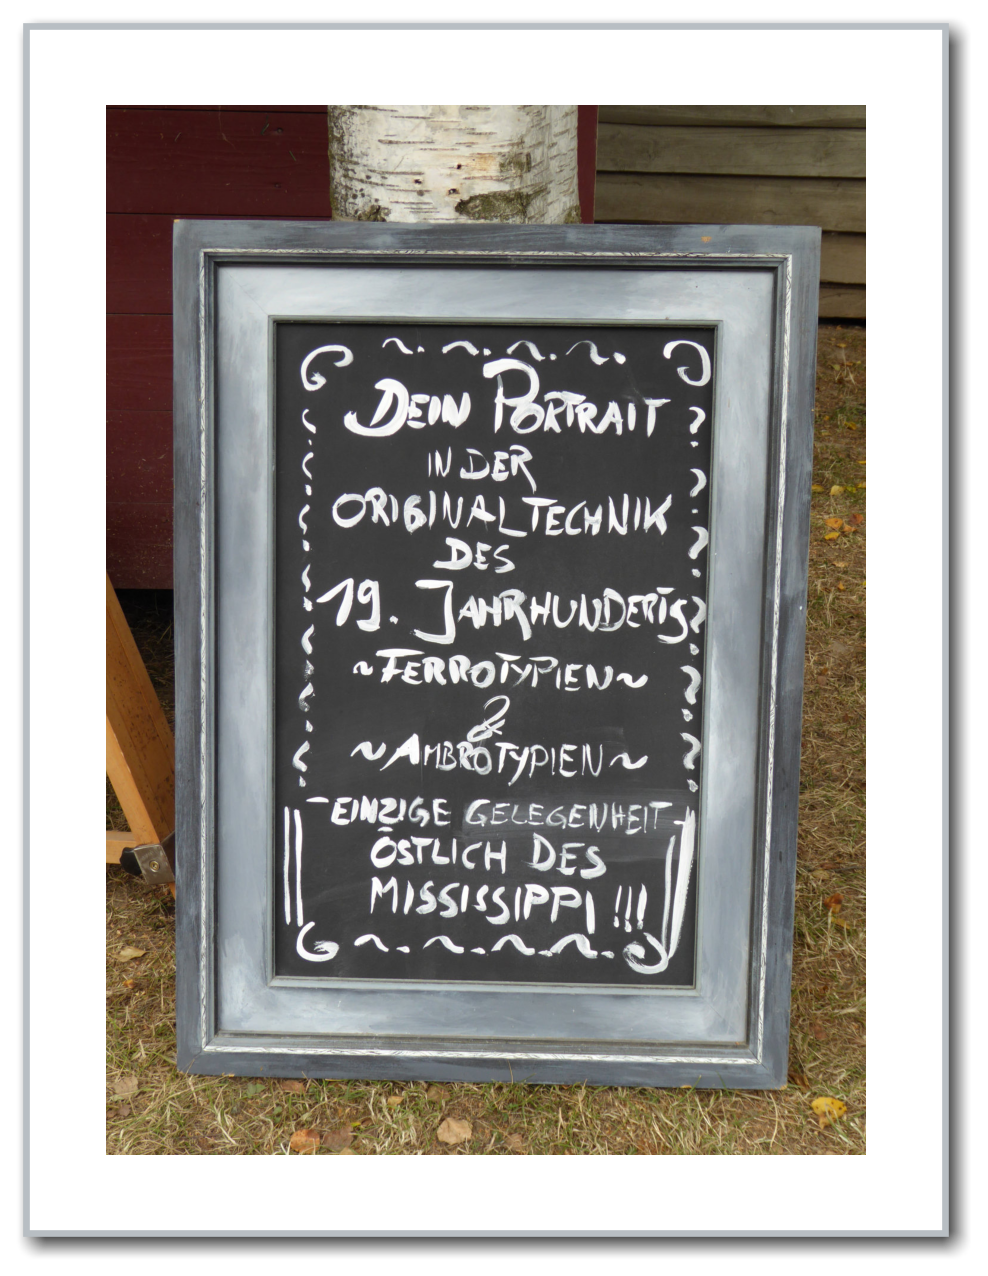 DEIN PORTRAIT
IN DER
ORIGINALTECHNIK
DES
19. JAHRHUNDERTS
~FERROTYPIEN~
&
~AMBROTYPIEN~
-EINZIGE GELEGENHEIT-
ÖSTLICH DES
MISSISSIPPI !!!